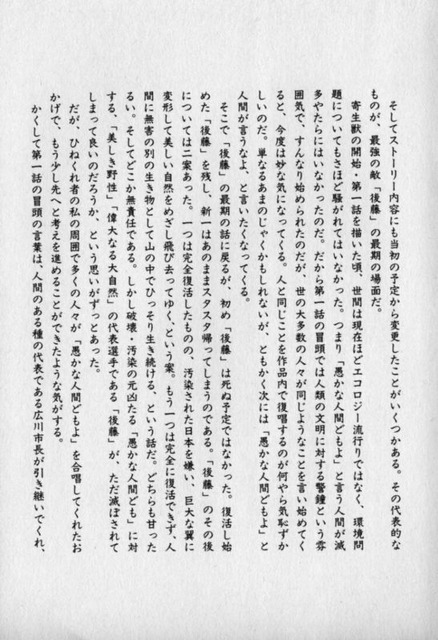 そしてストーリー内容にも当初の予定から変更したことがいくつかある。その代表的な
ものが、最強の敵「後藤」の最期の場面だ。
寄生獣の開始・第一話を描いた頃、世間は現在ほどエコロジー流行りではなく、環境問
題についてもさほど騒がれてはいなかった。つまり「愚かな人間どもよ」と言う人間が滅
多やたらにはいなかったのだ。だから第一話の冒頭では人類の文明に対する警鐘という雰
囲気で、すんなり始められたのだが、世の大多数の人々が同じようなことを言い始めてく
ると、今度は妙な気になってくる。人と同じことを作品内で復唱するのが何やら気恥ずか
しいのだ。単なるあまのじゃくかもしれないが、ともかく次には「愚かな人間どもよ」と
人間が言うなよ、と言いたくなってくる。
そこで「後藤」の最期の話に戻るが、初め「後藤」は死ぬ予定ではなかった。復活し始
めた「後藤」を残し、新一はあのままスタスタ帰ってしまうのである。「後藤」のその後
については二案あった。一つは完全復活したものの、汚染された日本を嫌い、巨大な翼に
変形して美しい自然をめざし飛び去ってゆく、という案。もう一つは完全に復活できず、人
間に無害の別の生き物として山の中でひっそり生き続ける、という話だ。どちらも甘った
るい。そしてどこか無責任である。しかし破壊・汚染の元凶たる「愚かな人間ども」に対
する、「美しき野性」「偉大なる大自然」の代表選手である「後藤」が、ただ滅ぼされて
しまって良いのだろうか、という思いがずっとあった。
だが、ひねくれ者の私の周囲で多くの人々が「愚かな人間どもよ」を合唱してくれたお
かげで、もう少し先へと考えを進めることができたような気がする。
かくして第一話の冒頭の言葉は、人間のある種の代表である広川市長が引き継いでくれ、